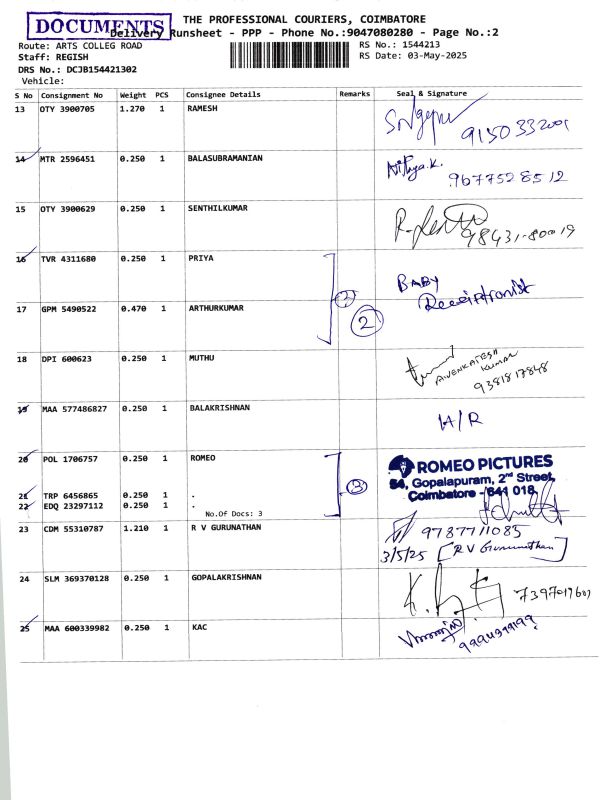 DOCUMENTS
THE PROFESSIONAL COURIERS, COIMBATORE
Delivery Runsheet - PPP - Phone No.:9047080280 - Page No.:2
Route: ARTS COLLEG ROAD
RS No.: 1544213
Staff: REGISH
RS Date: 03-May-2025
DRS No.: DCJB154421302
Vehicle:
S No Consignment No Weight PCS Consignee Details Remarks Seal & Signature
13 OTY 3900705 1.270 1 RAMESH
9150332001
14 MTR 2596451 0.250 1 BALASUBRAMANIAN
Nithya.K.
9677528512
15 OTY 3900629 0.250 1 SENTHILKUMAR
98431-80019
16 TVR 4311680 0.250 1 PRIYA
BABY
Receiptionist
17 GPM 5490522 0.470 1 ARTHURKUMAR
2
2
18 DPI 600623 0.250 1 MUTHU
A.VENKATESH
KUMAR
9381817848
19 MAA 577486827 0.250 1 BALAKRISHNAN
H/R
20 POL 1706757 0.250 1 ROMEO
3
ROMEO PICTURES
54, Gopalapuram, 2nd Street,
Coimbatore - 641 018
21 TRP 6456865 0.250 1 .
22 EDQ 23297112 0.250 1 .
No.Of Docs: 3
23 CDM 55310787 1.210 1 R V GURUNATHAN
9787711085
3/5/25 [R V Gurunathan]
24 SLM 369370128 0.250 1 GOPALAKRISHNAN
25 MAA 600339982 0.250 1 KAC